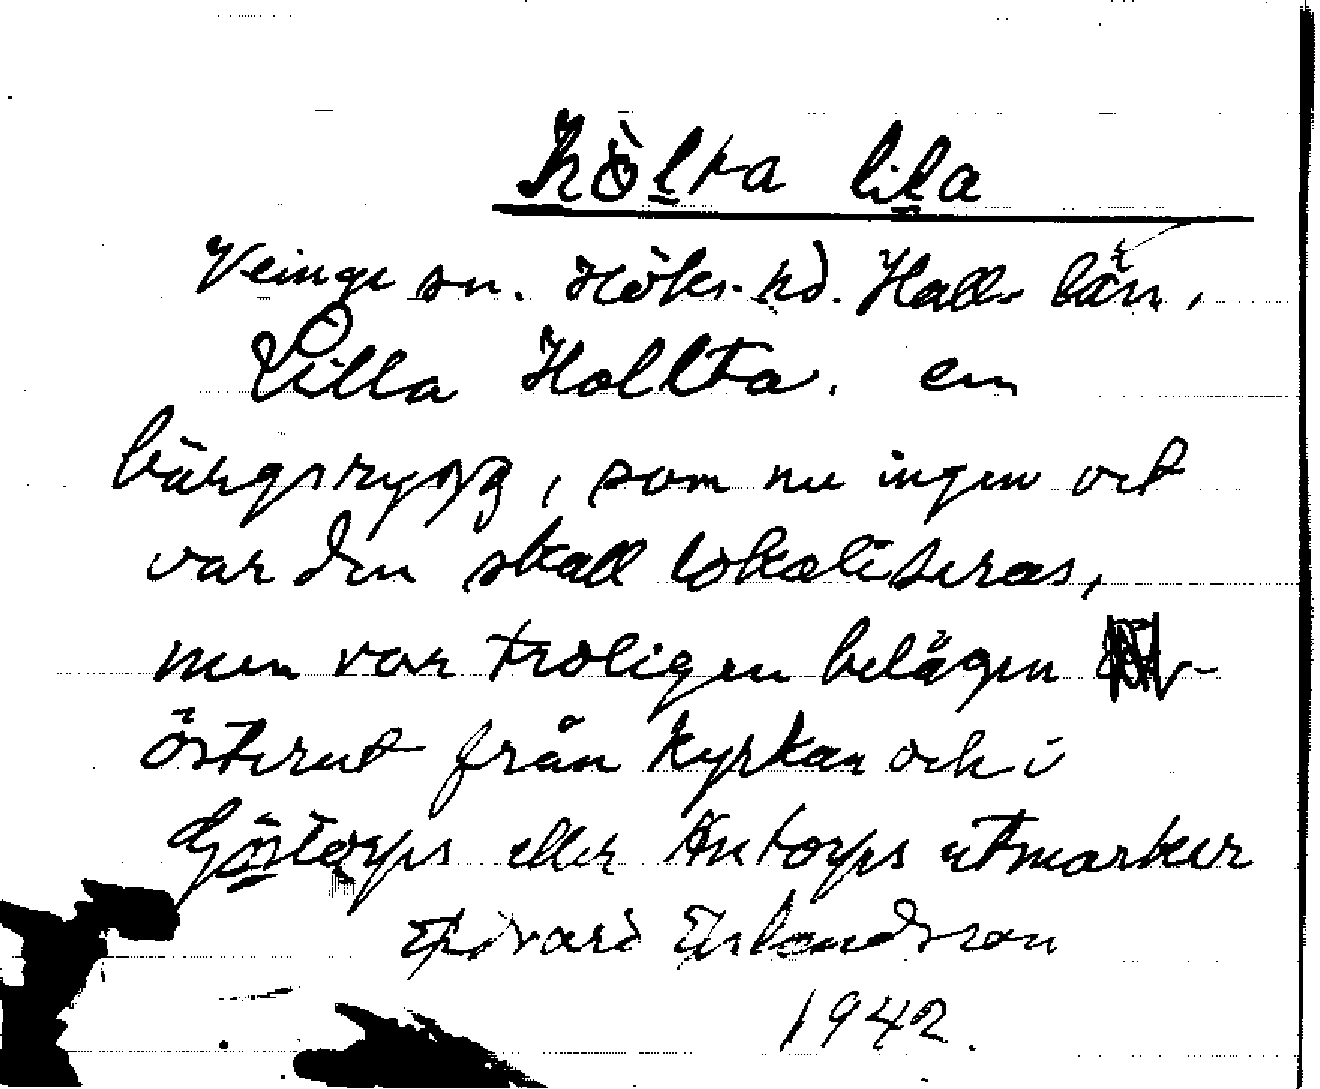 Hölta lila
Veinge sn. Höks. hd. Hall. län,
Lilla Hollta. en
bärgsrygg, som nu ingen vet
var den skall lokaliseras,
men var troligen belägen
österut från kyrkan och i
Göstorps eller Antorps utmarker
Edvard Erlandsson
1942.